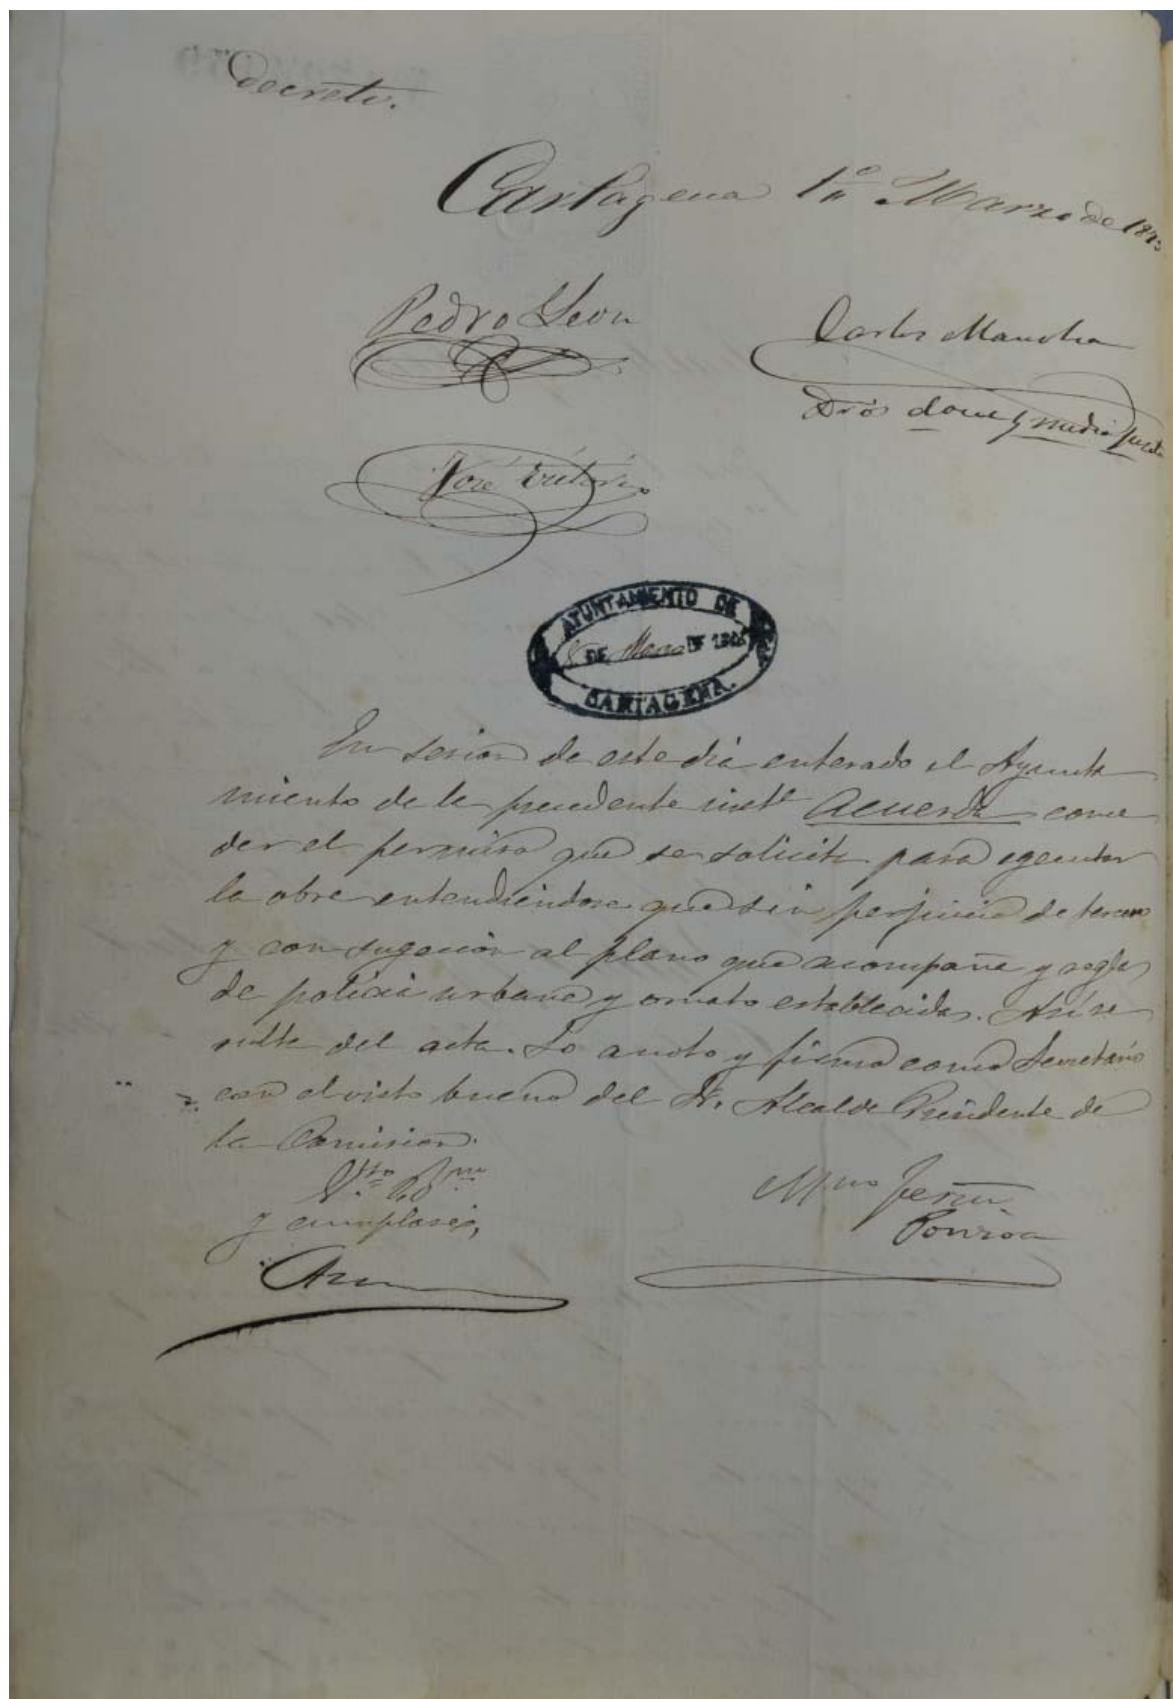 decreto.
Cartagena 1º Marzo de 187
Pedro Leon
Carlos Mancha
Dros doce y media
José
AYUNTAMIENTO DE
DE Marzo DE
CARTAGENA.
En sesion de este dia enterado el Ayunta
miento de la precedente instª Acuerda conce
der el permiso que se solicita para egecutar
la obra entendiendose que sin perjuicio de tercero
y con sugecion al plano que acompaña y reglas
de policia urbana y ornato establecidas. Asi re
sulta del acta. Lo anoto y firmo como Secretario
con el visto bueno del Sr. Alcalde Presidente de
la Comision.
Vto Bno
y cumplase,